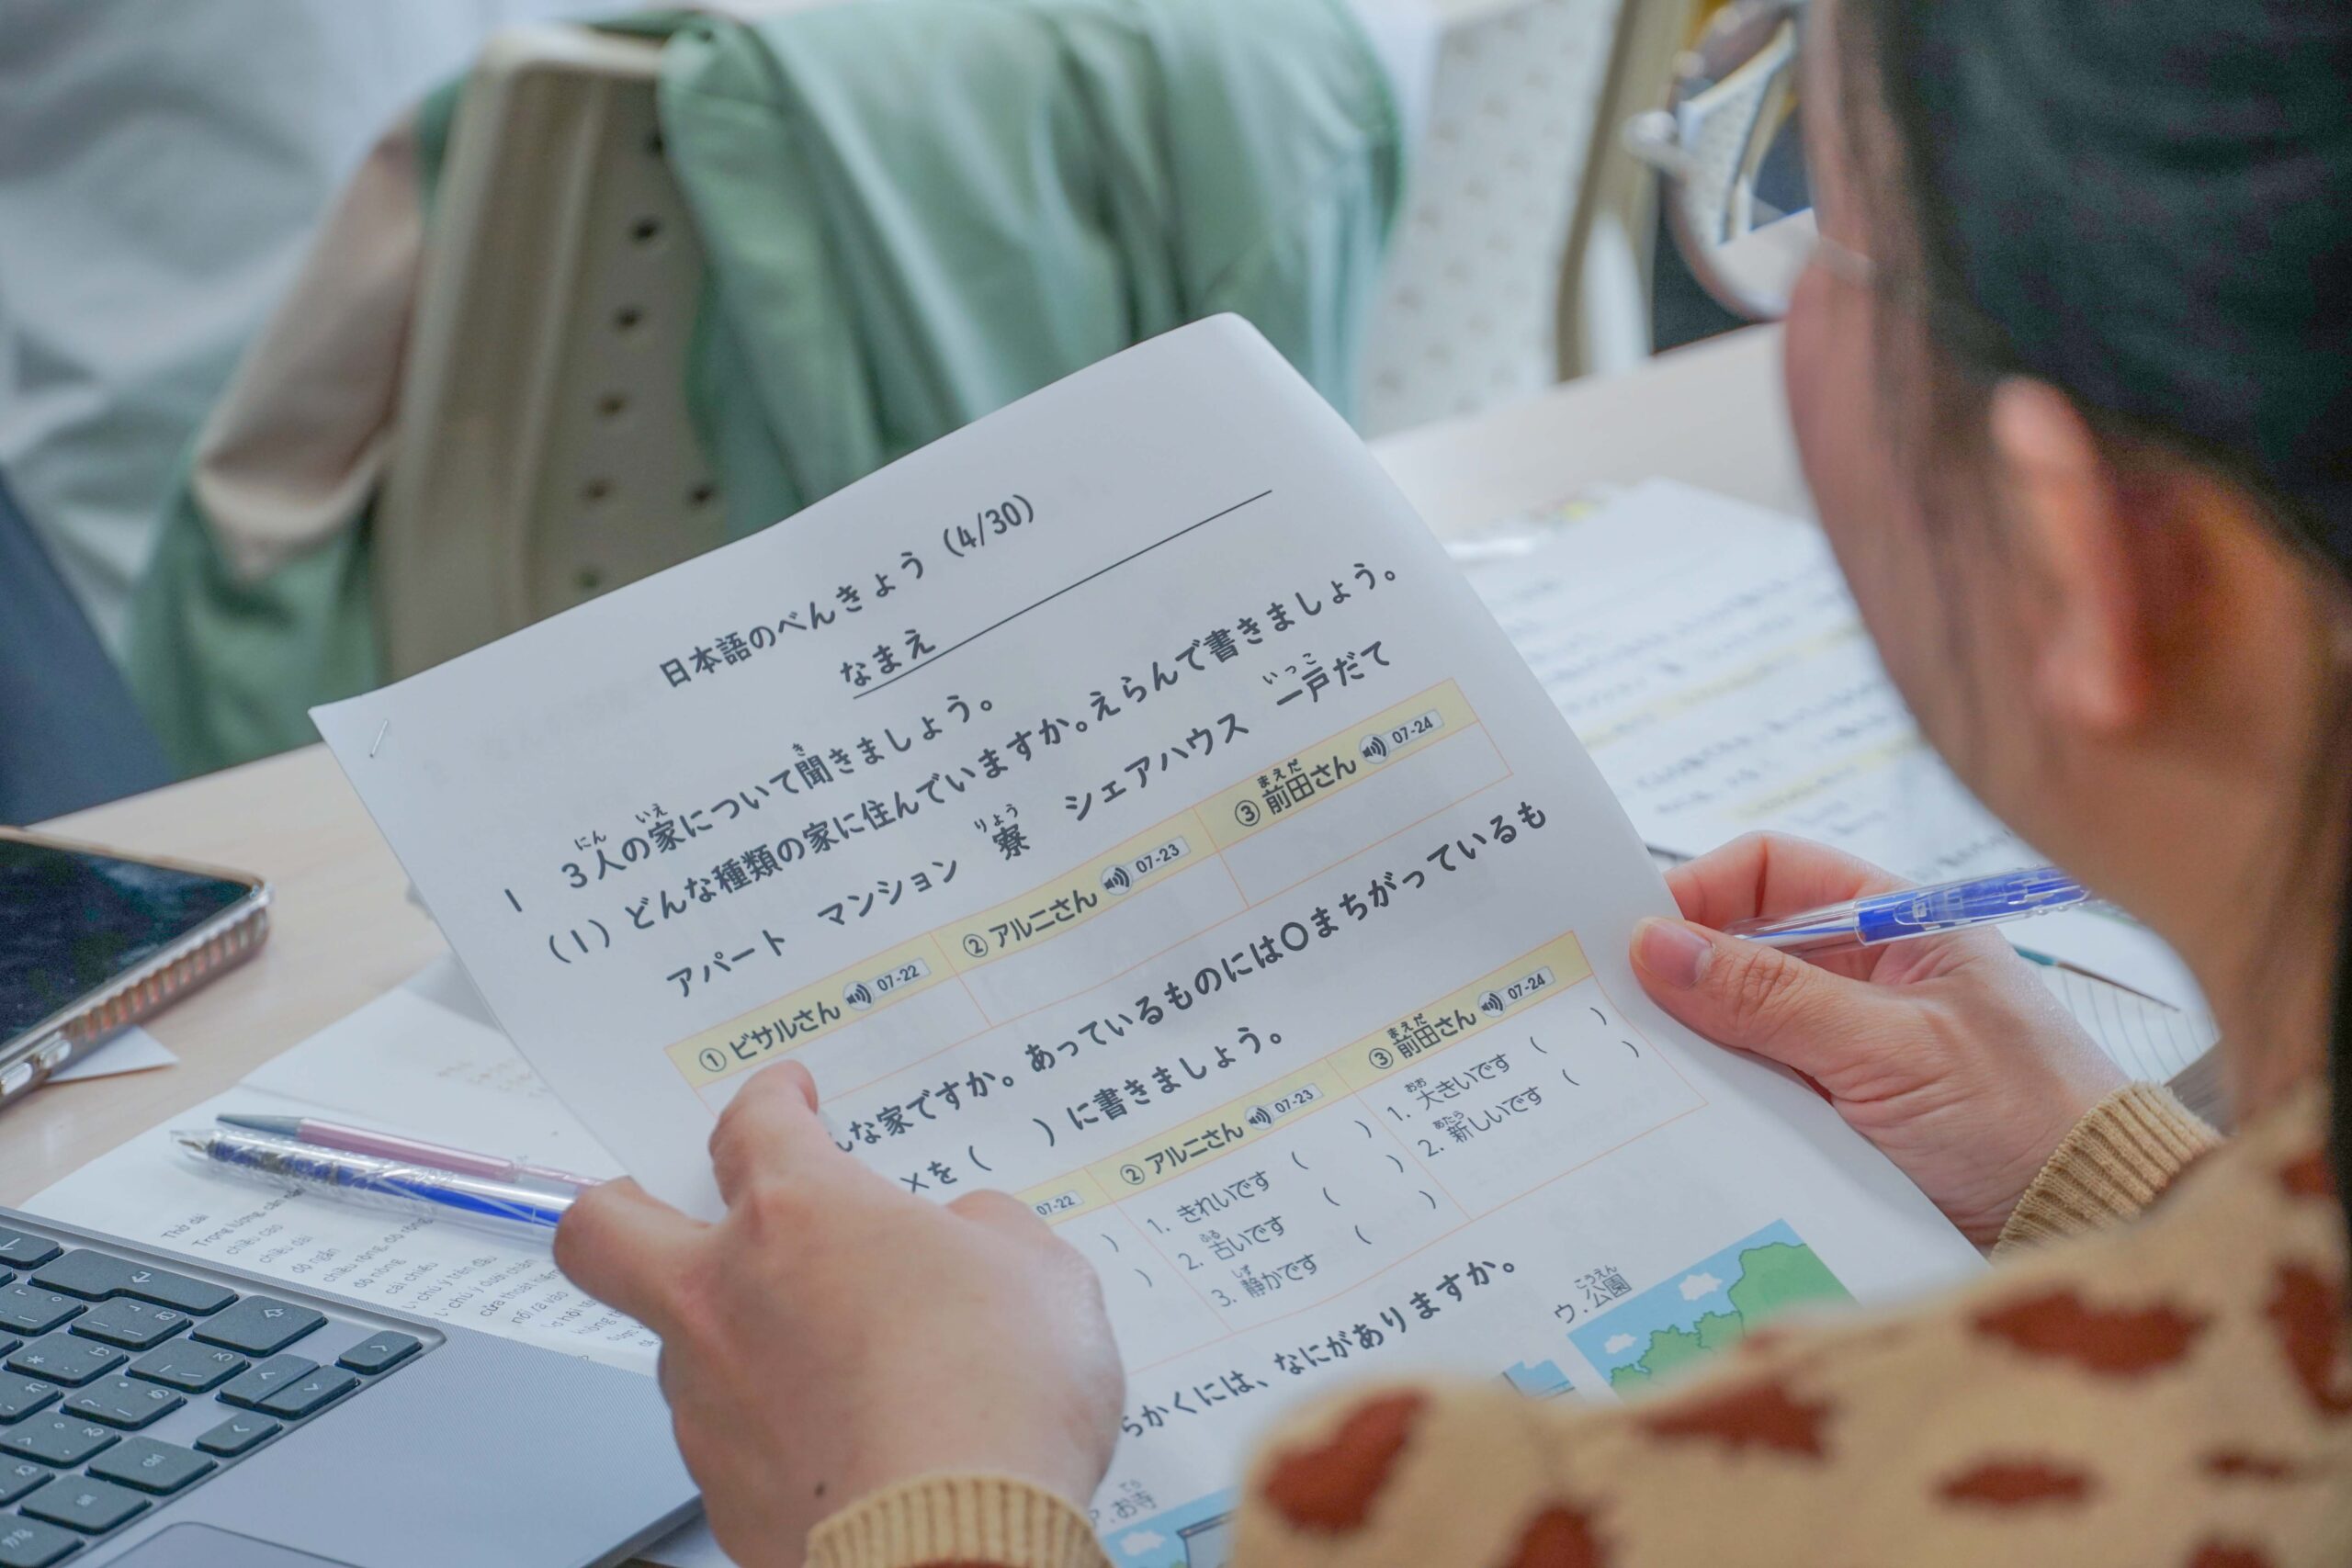 日本語のべんきょう（4/30）
なまえ
1　3人の家について聞きましょう。
にん　いえ　き
（1）どんな種類の家に住んでいますか。えらんで書きましょう。
アパート　マンション　寮　シェアハウス　一戸だて
りょう　いっこ
① ビサルさん 07-22　② アルニさん 07-23　③ 前田さん 07-24
まえだ
な家ですか。あっているものには〇まちがっているも
×を（　　）に書きましょう。
07-22　② アルニさん 07-23　③ 前田さん 07-24
まえだ
1. きれいです（　　）　1. 大きいです（　　）
おお
2. 古いです（　　）　2. 新しいです（　　）
ふる　あたら
3. 静かです（　　）
しず
かくには、なにがありますか。
お寺　ウ. 公園
てら　こうえん
Thời đại
chiều cao
chiều dài
độ ngắn
độ nông
cái chiếu